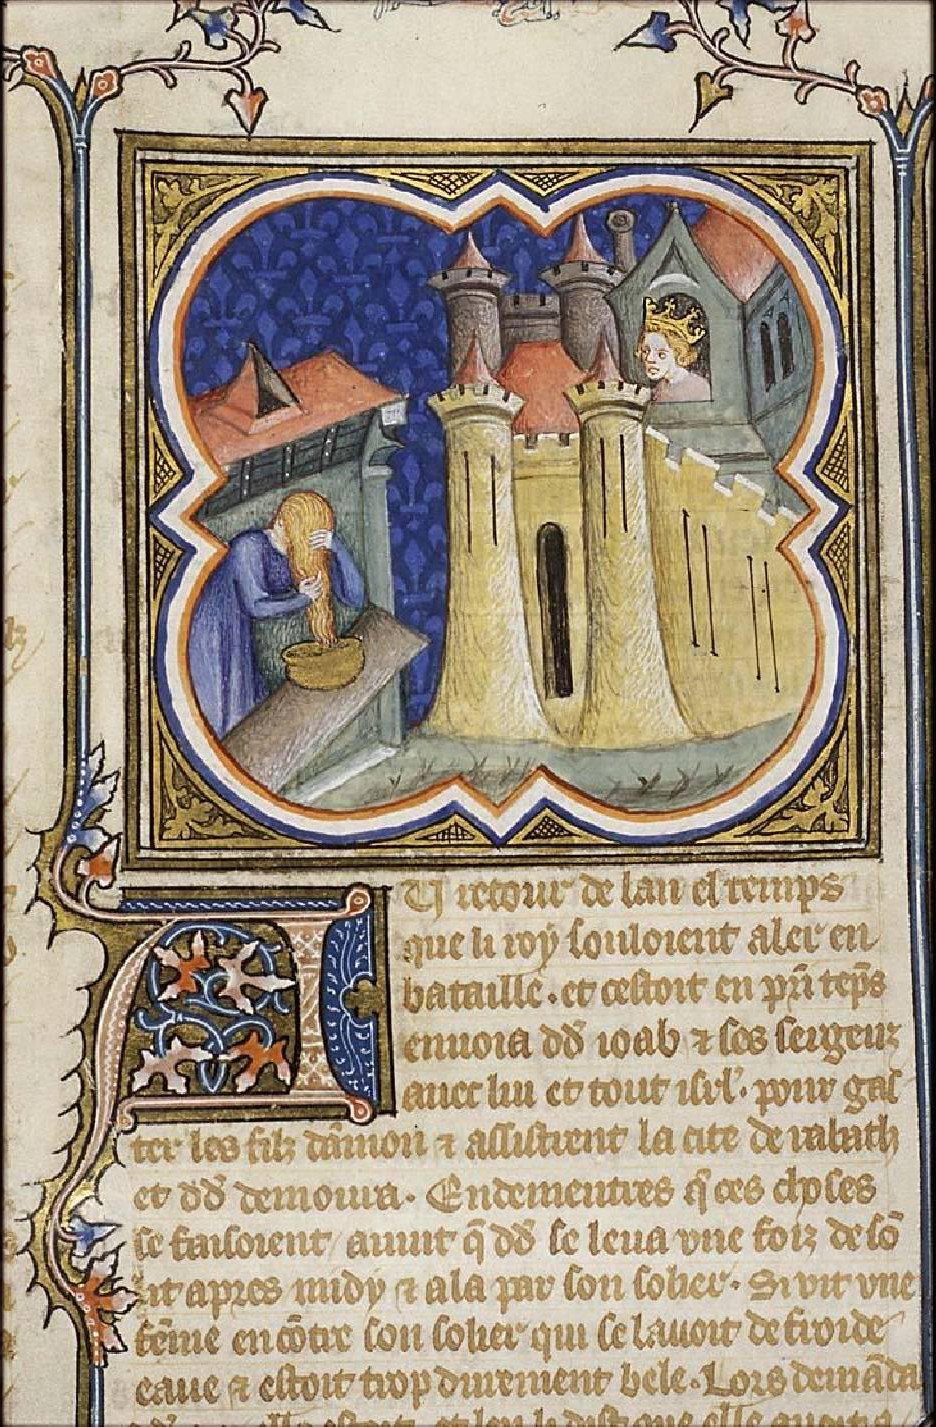 AU retour de lan el temps
que li roy souloient aler en
bataille. et cestoit en prī tēps
enuoia dd̄ ioab ⁊ ses sergenz
auec lui et tout isrl̄. pour gas
ter les filz dāmon ⁊ assistrent la cite de rabath
et dd̄ demoura. Endementres q̄ ces choses
se faisoient / auint q̄ dd̄ se leua vne foiz de sō
lit apres midy ⁊ ala par son solier. Si vit vne
fēme encōtre son solier qui se lauoit de froide
eaue ⁊ estoit trop durement bele. Lors demāda